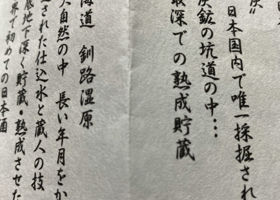 日本国内で唯一採掘され
炭鉱の坑道の中…
最深での熟成貯蔵
海道 釧路湿原
大自然の中 長い年月をか
された仕込水と蔵人の技
底地下深く貯蔵・熟成させた
界で初めての日本酒